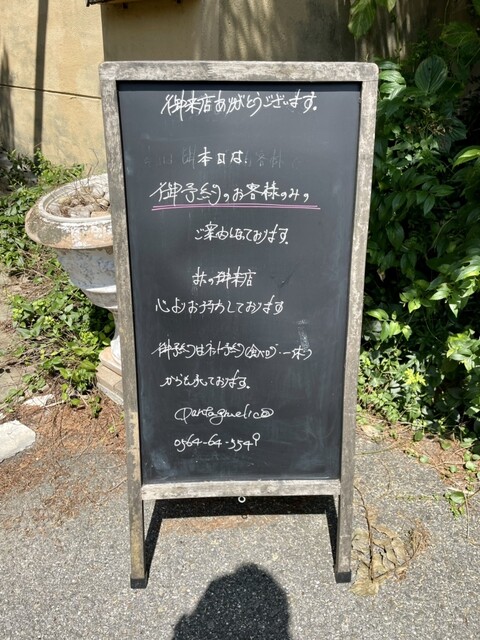 御来店ありがとうございます。
本日は
御予約のお客様のみの
ご案内しております。
又の御来店
心よりお待ちしております
御予約はネット予約(食べログ・一休)
からも承っております。
Pantagruelico
0564-64-3549